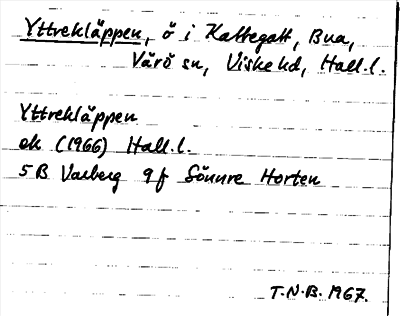 Yttrekläppen, ö i Kattegatt, Bua,
Värö sn, Viske hd, Hall.l.
Yttrekläppen
ek (1966) Hall.l.
5B Varberg 9f Sönnre Horten
T.N.B. 1967.